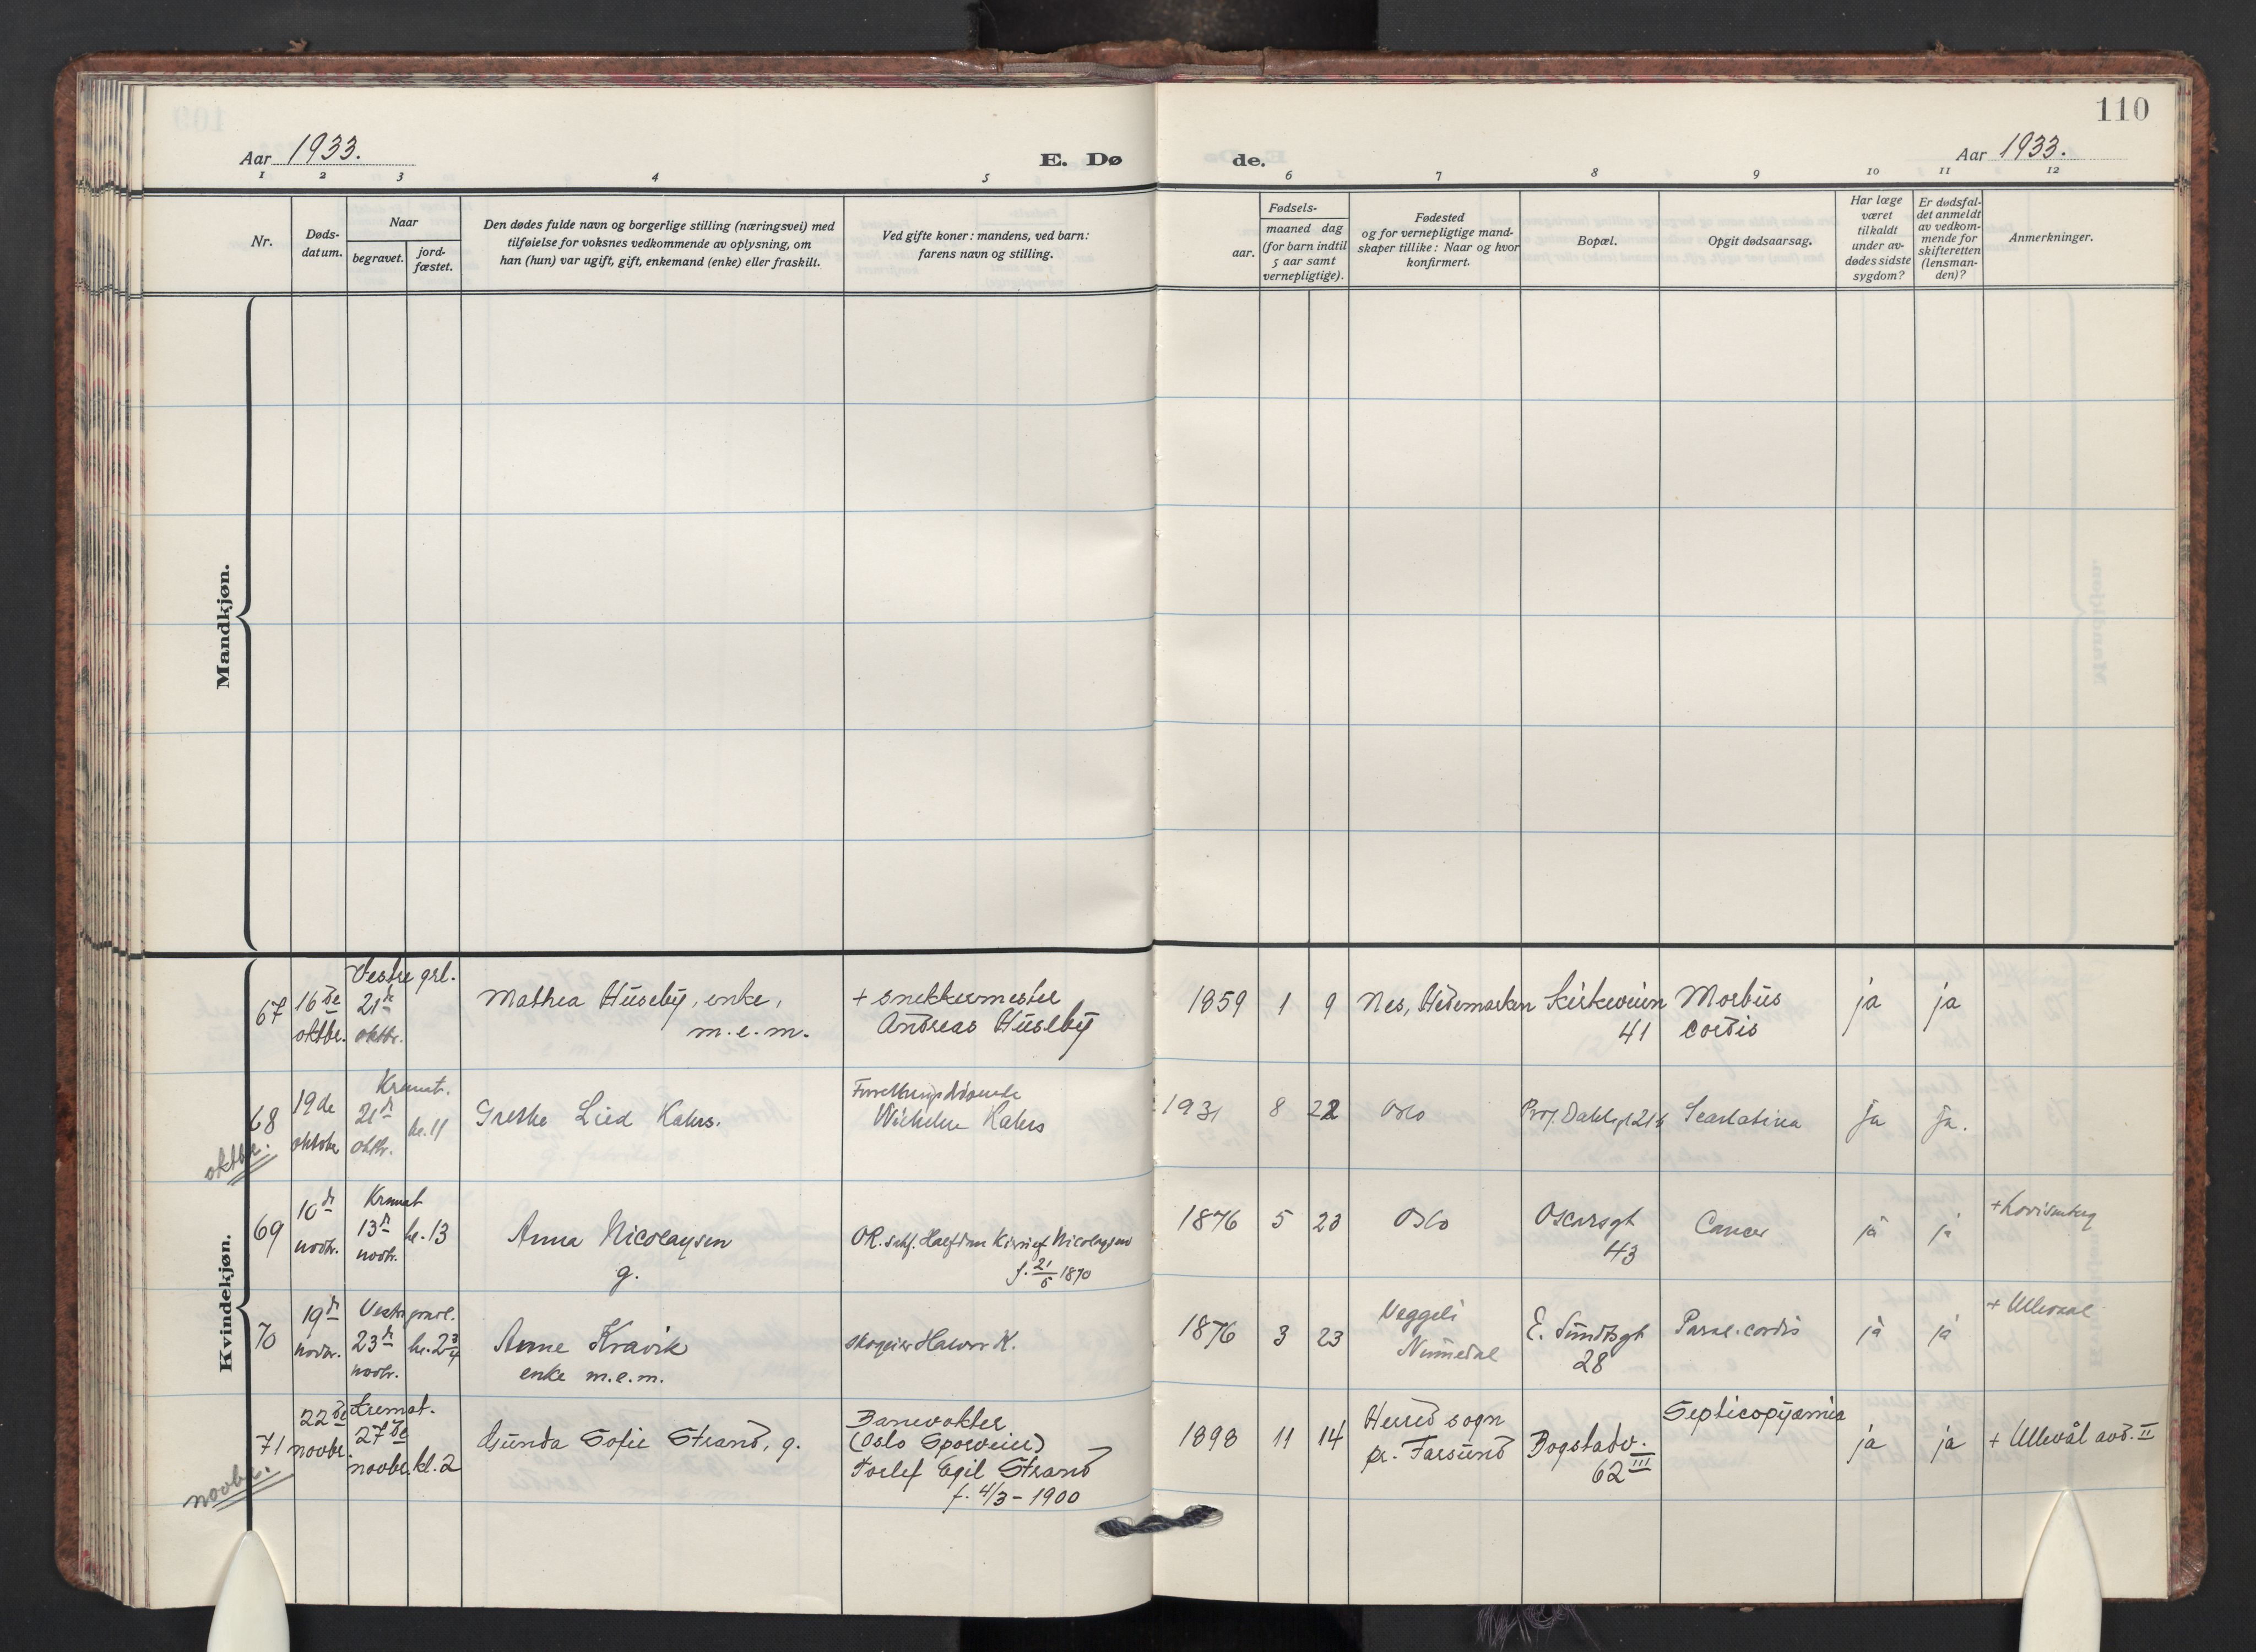 110
Aar 1933.
E. Dø
de.
Aar 1933.
1 2 3 4 5 6 7 8 9 10 11 12
Nr.
Døds-
datum.
Naar
begravet.
jord-
fæstet.
Den dødes fulde navn og borgerlige stilling (næringsvei) med
tilføielse for voksnes vedkommende av oplysning, om
han (hun) var ugift, gift, enkemand (enke) eller fraskilt.
Ved gifte koner: mandens, ved barn:
farens navn og stilling.
Fødsels-
aar.
maaned dag
(for barn indtil
5 aar samt
vernepligtige).
Fødested
og for vernepligtige mand-
skaper tillike: Naar og hvor
konfirmert.
Bopæl.
Opgit dødsaarsag.
Har læge
været
tilkaldt
under av-
dødes sidste
sygdom?
Er dødsfal-
det anmeldt
av vedkom-
mende for
skifteretten
(lensman-
den)?
Anmerkninger.
Mandkjøn.
Kvindekjøn.
67
16de
oktbr.
Vestre grl.
21de
oktbr.
Mathea Huseby, enke,
m.e.m.
+ snekkermester
Andreas Huseby
1859 1 9
Nes, Hedemarken
Kirkeveien
41
Morbus
cordis
ja
ja
68
oktbr.
19de
oktobr
Kremat.
21de
oktbr.
kl. 11
Grethe Lied Kahrs.
Wilhelm Kahrs
1931 8 22
Oslo
Prof. Dahlsgt 21b
Scarlatina
ja
ja.
69
10de
novbr.
Kremat
13de
novbr.
kl. 13
Anna Nicolaysen
g.
Nicolaysen
f. 21/6 1870
1876 5 20
Oslo
Oscarsgt
43
Cancer
ja
ja
+ Lovisenberg
70
19de
novbr.
Vestre gravl.
23de
novbr.
kl. 2 3/4
Anne Kravik
enke m.e.m.
skogeier Halvor K.
1876 3 23
Veggeli
Numedal
E. Sundtsgt
28
Paral. cordis
ja
ja
+ Ullevaal
71
novbr.
22de
novbr.
Kremat.
27de
novbr.
kl. 2
Gunda Sofie Strand, g.
Banevokter
(Oslo Sporveier)
Torlef Egil Strand
f. 4/3 - 1900
1898 11 14
Herred sogn
pr. Farsund
Bogstadv.
62 III
Septicopyämie
ja
ja
+ Ullevål avd. II